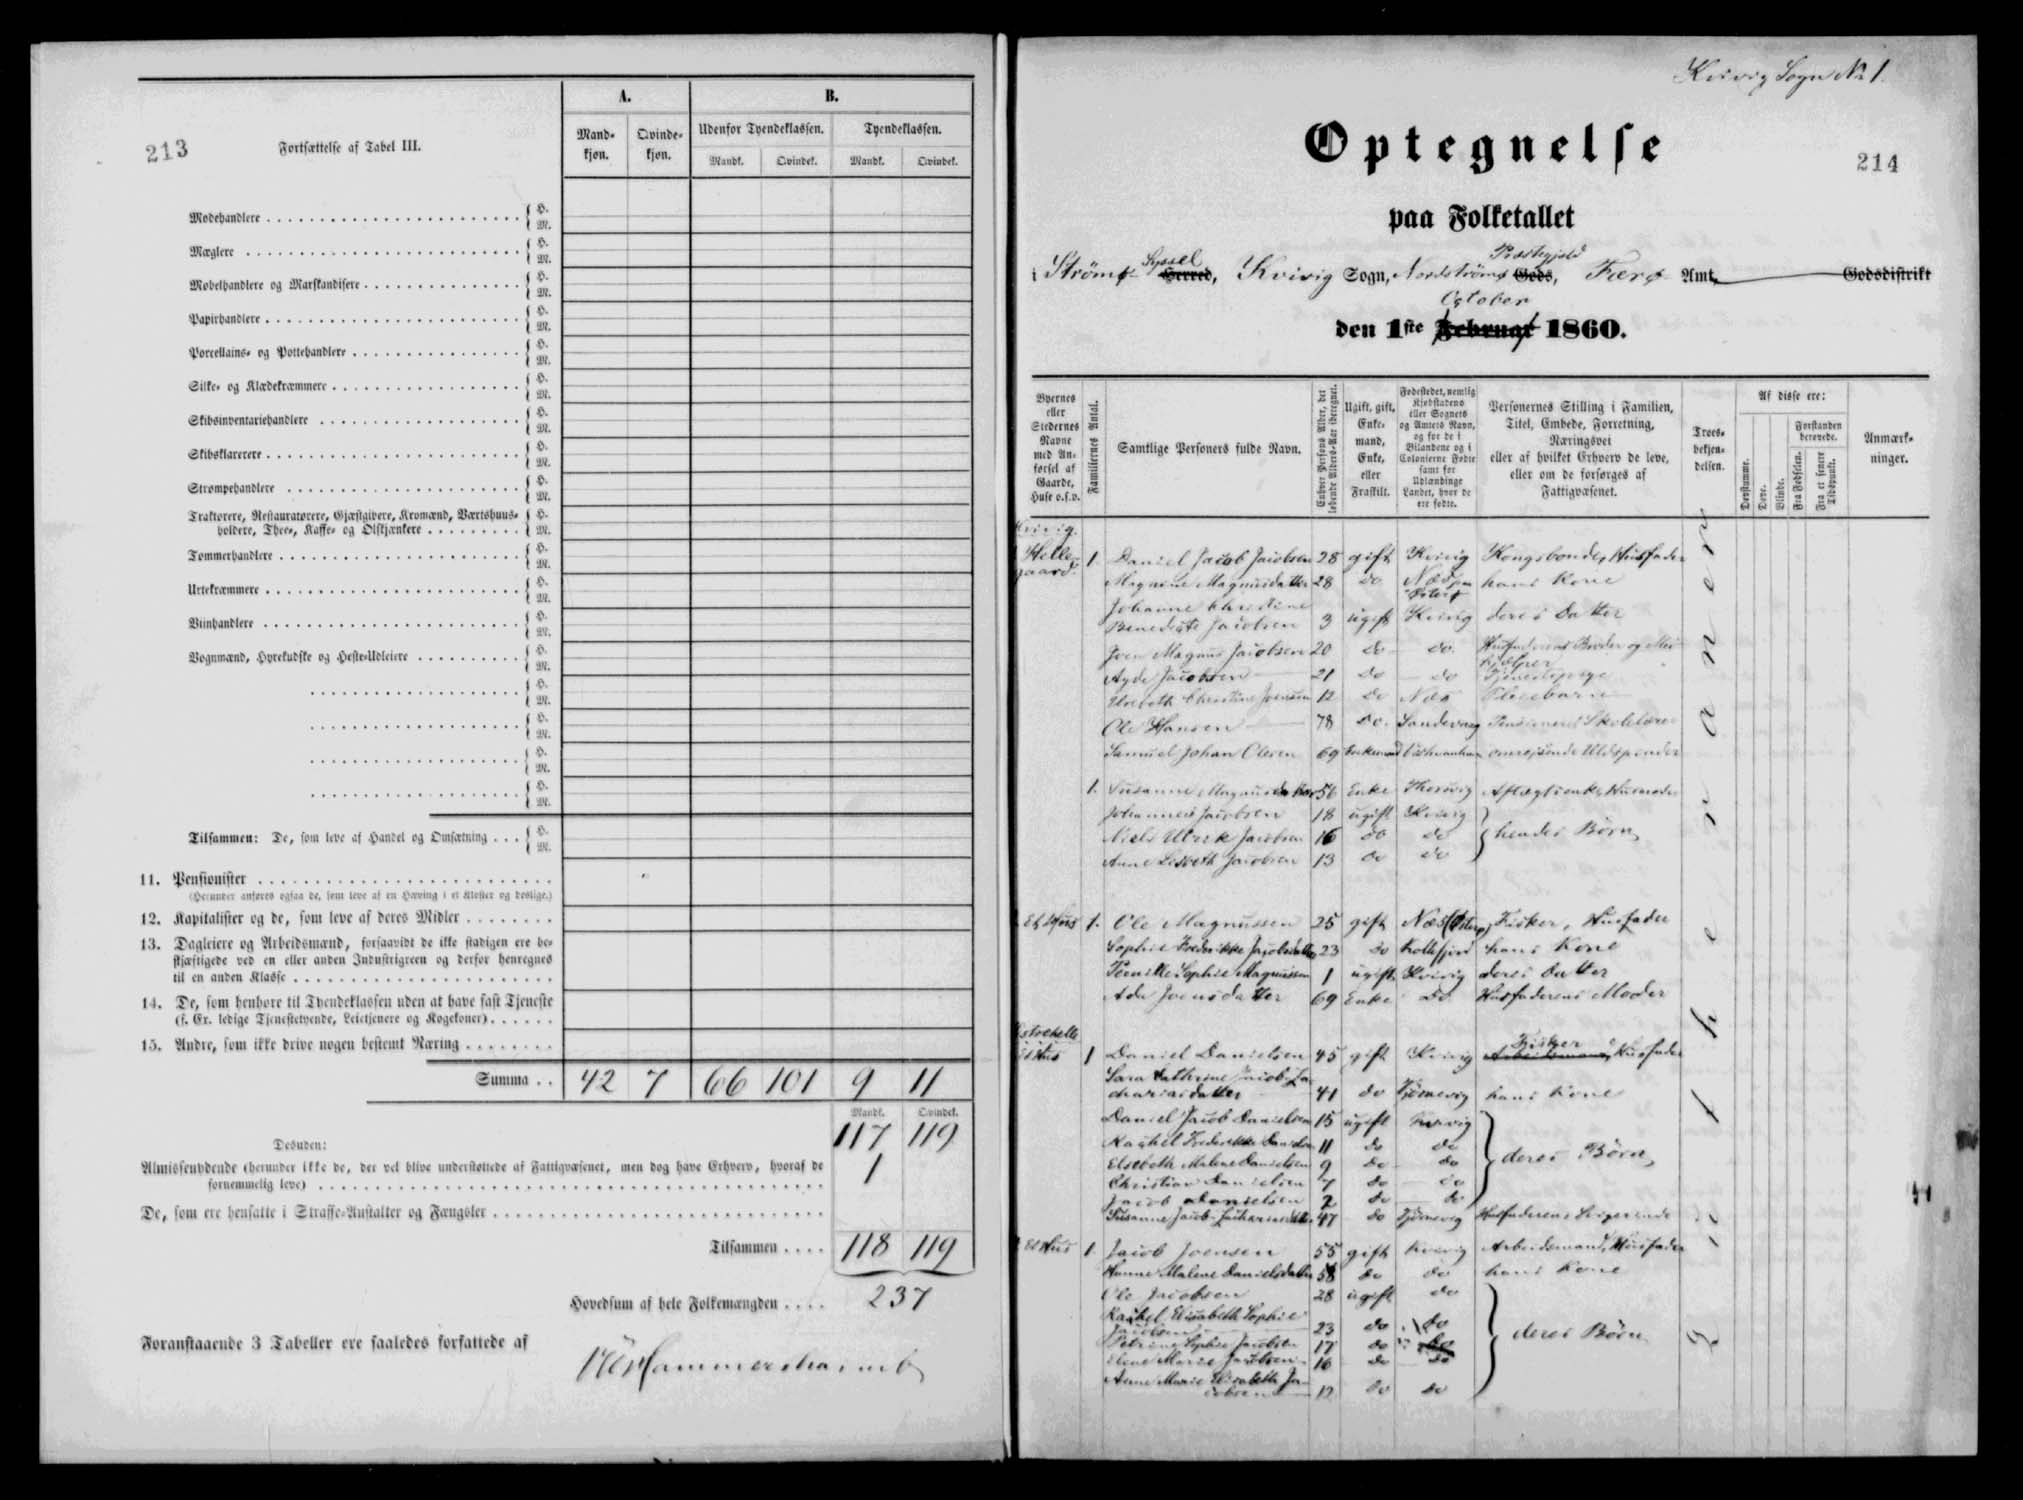 213
Fortsættelse af Tabel III.
A.
B.
Mand-
kjøn.
Qvinde-
kjøn.
Udenfor Tyendeklassen.
Tyendeklassen.
Mandk.
Qvindek.
Mandk.
Qvindek.
Modehandlere { H. M.
Mæglere { H. M.
Møbelhandlere og Marskandisere { H. M.
Papirhandlere { H. M.
Porcellains- og Pottehandlere { H. M.
Silke- og Klædekræmmere { H. M.
Skibsinventariehandlere { H. M.
Skibsklarerere { H. M.
Strømpehandlere { H. M.
Traktører, Restauratører, Gjæstgivere, Kromænd, Værtshuus-
holdere, Thee-, Kaffe- og Ølskjænkere { H. M.
Tømmerhandlere { H. M.
Urtekræmmere { H. M.
Viinhandlere { H. M.
Vognmænd, Hyrekudske og Heste-Udleiere { H. M.
{ H. M.
{ H. M.
{ H. M.
{ H. M.
Tilsammen: De, som leve af Handel og Omsætning . . . { H. M.
11. Pensionister
(Herunder anføres ogsaa de, som leve af en Hæving i et Kloster og deslige.)
12. Kapitalister og de, som leve af deres Midler
13. Dagleiere og Arbeidsmænd, forsaavidt de ikke stadigen ere be-
skjæftigede ved en eller anden Industrigreen og derfor henregnes
til en anden Klasse
14. De, som henhøre til Tyendeklassen uden at have fast Tjeneste
(f. Ex. ledige Tjenestetyende, Leietjenere og Kogekoner)
15. Andre, som ikke drive nogen bestemt Næring
Summa . . 42 7 66 101 9 11
Mandk. Qvindek.
117 119
Desuden:
Almissenydende (herunder ikke de, der vel blive understøttede af Fattigvæsenet, men dog have Erhverv, hvoraf de
fornemmelig leve) 1
De, som ere hensatte i Straffe-Anstalter og Fængsler
Tilsammen . . . . 118 119
Hovedsum af hele Folkemængden . . . . 237
Foranstaaende 3 Tabeller ere saaledes forfattede af
Hammershaimb
Kvivig Sogn No 1.
Optegnelse
214
paa Folketallet
Syssel
Præstegjeld
i Strömø Herred, Kvivig Sogn, Nordströmø Gods, Færø Amt, Godsdistrikt
October
den 1ste Februar 1860.
Byernes
eller
Stedernes
Navne
med An-
førsel af
Gaarde,
Huse o.s.v.
Familiernes Antal.
Samtlige Personers fulde Navn.
Enhver Persons Alder, det
løbende Alders-Aar iberegnet.
Ugift, gift,
Enke-
mand,
Enke,
eller
Fraskilt.
Fødestedet, nemlig
Kjøbstadens
eller Sognets
og Amtets Navn,
og for de i
Bilandene og i
Colonierne Fødte
samt for
Udlændinge
Landet, hvor de
ere fødte.
Personernes Stilling i Familien,
Titel, Embede, Forretning,
Næringsvei
eller af hvilket Erhverv de leve,
eller om de forsørges af
Fattigvæsenet.
Troes-
bekjen-
delsen.
Af disse ere:
Døvstumme.
Døve.
Blinde.
Forstanden
berøvede.
Fra Fødselen.
Fra et senere
Tidspunkt.
Anmærk-
ninger.
Kvivig.
Helle-
gaard. 1. Daniel Jacob Jacobsen 28 gift Kvivig Kongsbonde, Husfader
Magnine Magnusdatter 28 do Næs paa Østerø hans Kone
Johanne Christine
Benedicte Jacobsen 3 ugift Kvivig deres Datter
Joen Magnus Jacobsen 20 do do Husfaderens Broder og Med-
hjælper
Jacobsen 21 do do Tjenestepige
Elsebeth Christine Joensen 12 do Næs Pleiebarn
Ole Hansen 78 do. Sandevaag Pensioneret Skolelærer
Samuel Johan Olesen 69 Enkemand omrejsende Uldspinder
1. Susanne Magnusdatter 56 Enke Thorsvig Aftægtsenke, Husmoder
Johannes Jacobsen 18 ugift Kvivig
Niels Ulrik Jacobsen 16 do do } hendes Børn
Anne Lisbeth Jacobsen 13 do do
Et Huus 1. Ole Magnussen 25 gift Næs (Østerø) Fisker, Husfader
Sophie Frederikke Jacobsdatter 23 do Kollefjord hans Kone
Pernille Sophie Magnussen 1 ugift Kvivig deres Datter
Ada Joensdatter 69 Enke do. Husfaderens Moder
Et Hus 1 Daniel Danielsen 45 gift Kvivig Fisker Arbeidsmand, Husfader
Sara Cathrine Jacob-Za-
chariasdatter 41 do Tjørnevig hans Kone
Daniel Jacob Danielsen 15 ugift Kvivig
Rachel Frederikke Danielsen 11 do do
Elsebeth Malene Danielsen 9 do do } deres Børn
Christian Danielsen 7 do do
Jacob Danielsen 2 do do
Susanne Jacob-Zachariasdatter 47 do Tjørnevig Husfaderens Svigerinde
Et Hus 1. Jacob Joensen 55 gift Kvivig Arbeidsmand, Husfader
Hanne Malene Danielsdatter 58 do do hans Kone
Ole Jacobsen 28 ugift do
Rachel Elisabeth Sophie
Jacobsen 23 do do
Petrine Sophie Jacobsen 17 do do } deres Børn
Marie Jacobsen 16 do do
Anne Marie Elisabeth Ja-
cobsen 12 do do
Lutheranere